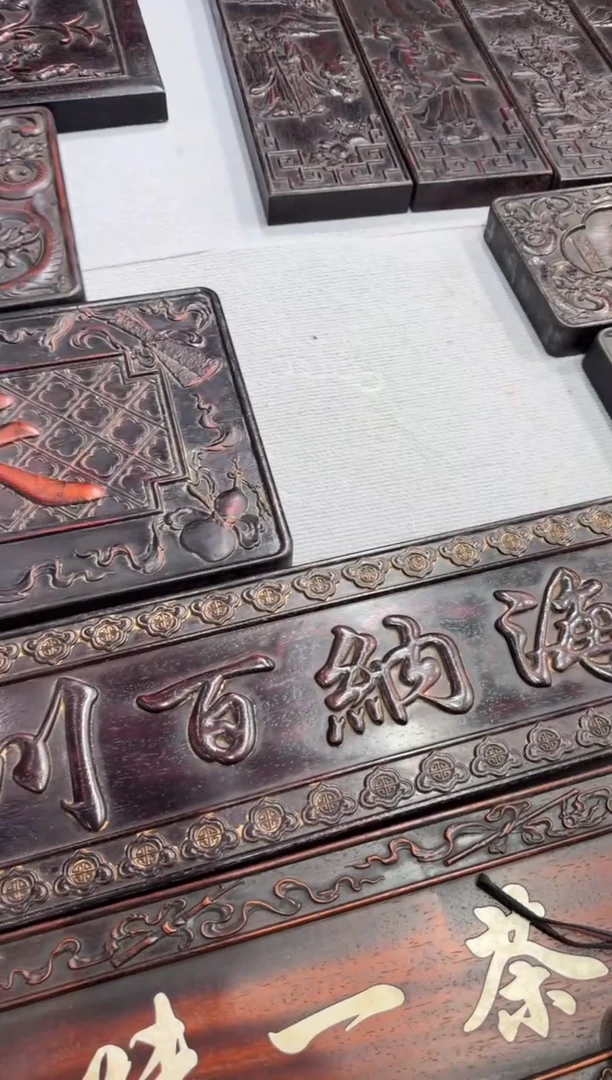 海納百川
茶一味